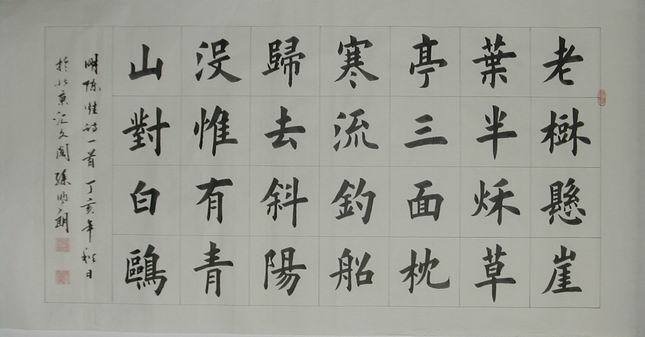 老樹懸崖
葉半烁草
亭三面枕
寒流釣船
歸去斜陽
沒惟有青
山對白鷗
明陳惟诗一首 丁亥年秋日
於北京汇文阁 孫